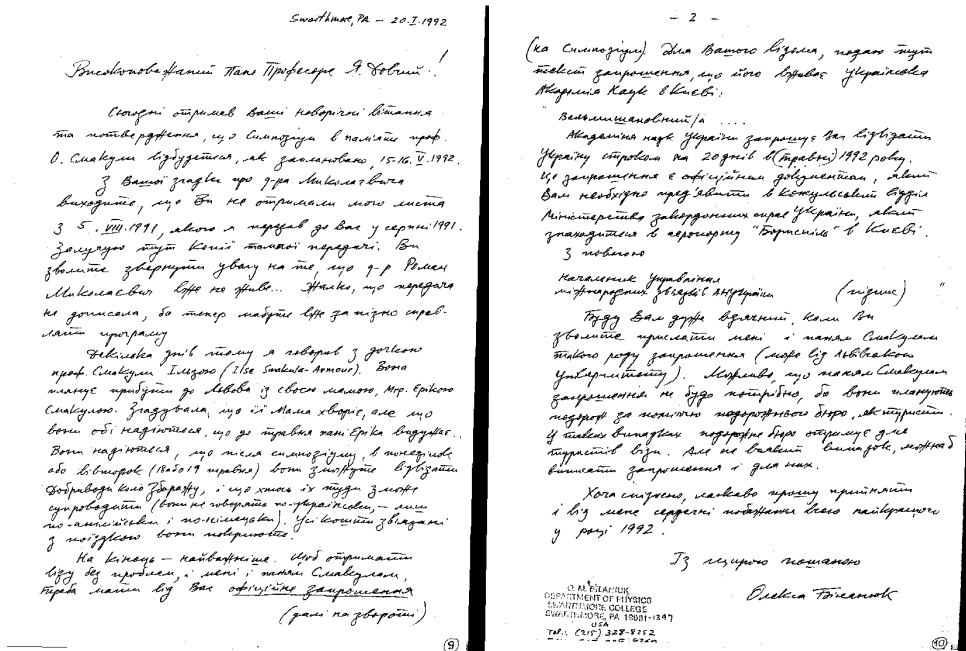 Swarthmore, PA – 20.I.1992
Високоповажаний Пане Професоре Я. Довгий!
Сьогодні отримав Ваші новорічні вітання
та потвердження, що Симпозіум в пам'ять проф.
О. Смакули відбудеться, як заплановано, 15-16.V.1992.
З Вашої згадки про д-ра Миколаєвича
виходить, що Ви не отримали мого листа
з 5.VIII.1991, якого я передав до Вас у серпні 1991.
Залучую тут копії тої передачі. Ви
зволите звернути увагу на те, що д-р Роман
Миколаєвич вже не живе... Жалко, що передача
не дописала, бо тепер мабуть вже запізно справ-
ляти програму
Декілька днів тому я говорив з дочкою
проф. Смакули Ільзою (Ilse Smakula-Armour). Вона
планує прибути до Львова із своєю мамою, Ерікою
Смакулою. Згадувала, що її мама хворіє, але що
вони обі надіються, що до травня пані Еріка видужає..
Вони надіються, що після симпозіуму, в понеділок
або вівторок (18 або 19 травня) вони зможуть відвідати
Добриводи коло Збаражу, і що хтось їх туди зможе
супроводити (вони не говорять по-українськи, – лиш
по-англійськи і по-німецьки). Усі кошти зв'язані
з поїздкою вони повернуть.
На кінець – найважніше. Щоб отримати
візу без проблем, і мені і паням Смакулам,
треба мати від Вас офіційне запрошення
(далі на звороті)
9
– 2 –
(на Симпозіум). Для Вашого відома, подаю тут
текст запрошення, що його вживає Українська
Академія Наук в Києві:
"Вельмишановний/а ....
Академія наук України запрошує Вас відвідати
Україну строком на 20 днів в (травні) 1992 року.
Це запрошення є офіційним документом, який
Вам необхідно пред'явити в Консульський відділ
Міністерства закордонних справ України, який
знаходиться в аеропорту "Бориспіль" в Києві.
З повагою
Начальник Управління
міжнародних зв'язків АН України (підпис) "
Буду Вам дуже вдячний, коли Ви
зволите прислати мені і паням Смакулам
такого роду запрошення (може від Львівського
Університету). Можливо, що паням Смакулам
запрошення не буде потрібно, бо вони планують
подорож за поміччю подорожнього бюро, як туристи.
У таких випадках подорожнє бюро отримує для
туристів візи. Але на всякий випадок, можна б
виписати запрошення і для них.
Хоча спізнено, ласкаво прошу прийняти
і від мене сердечні побажання всього найкращого
у році 1992.
Із щирою пошаною
Олекса Біланюк
O. M. BILANIUK
DEPARTMENT OF PHYSICS
SWARTHMORE COLLEGE
SWARTHMORE, PA 19081-1397
USA
Tel.: (215) 328-8252
10